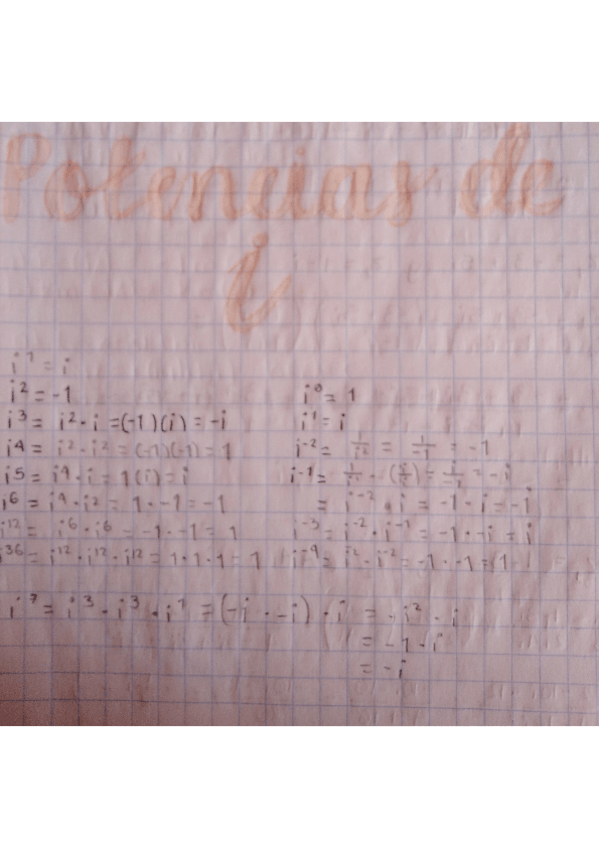 Potencias de
i
i¹ = i
i² = -1
i³ = i² · i = (-1)(i) = -i
i⁴ = i² · i² = (-1)(-1) = 1
i⁵ = i⁴ · i = 1(i) = i
i⁶ = i⁴ · i² = 1 · -1 = -1
i¹² = i⁶ · i⁶ = -1 · -1 = 1
i³⁶ = i¹² · i¹² · i¹² = 1 · 1 · 1 = 1
i⁰ = 1
i¹ = i
i⁻² = 1/i² = 1/-1 = -1
i⁻¹ = = -i
= i⁻² · i = -1 · i = -i
i⁻³ = i⁻² · i⁻¹ = -1 · -i = i
i⁻⁴ = i² · i⁻² = -1 · -1 = 1
i⁷ = i³ · i³ · i¹ = (-i · -i) · i = i² · i
= -1 · i
= -i